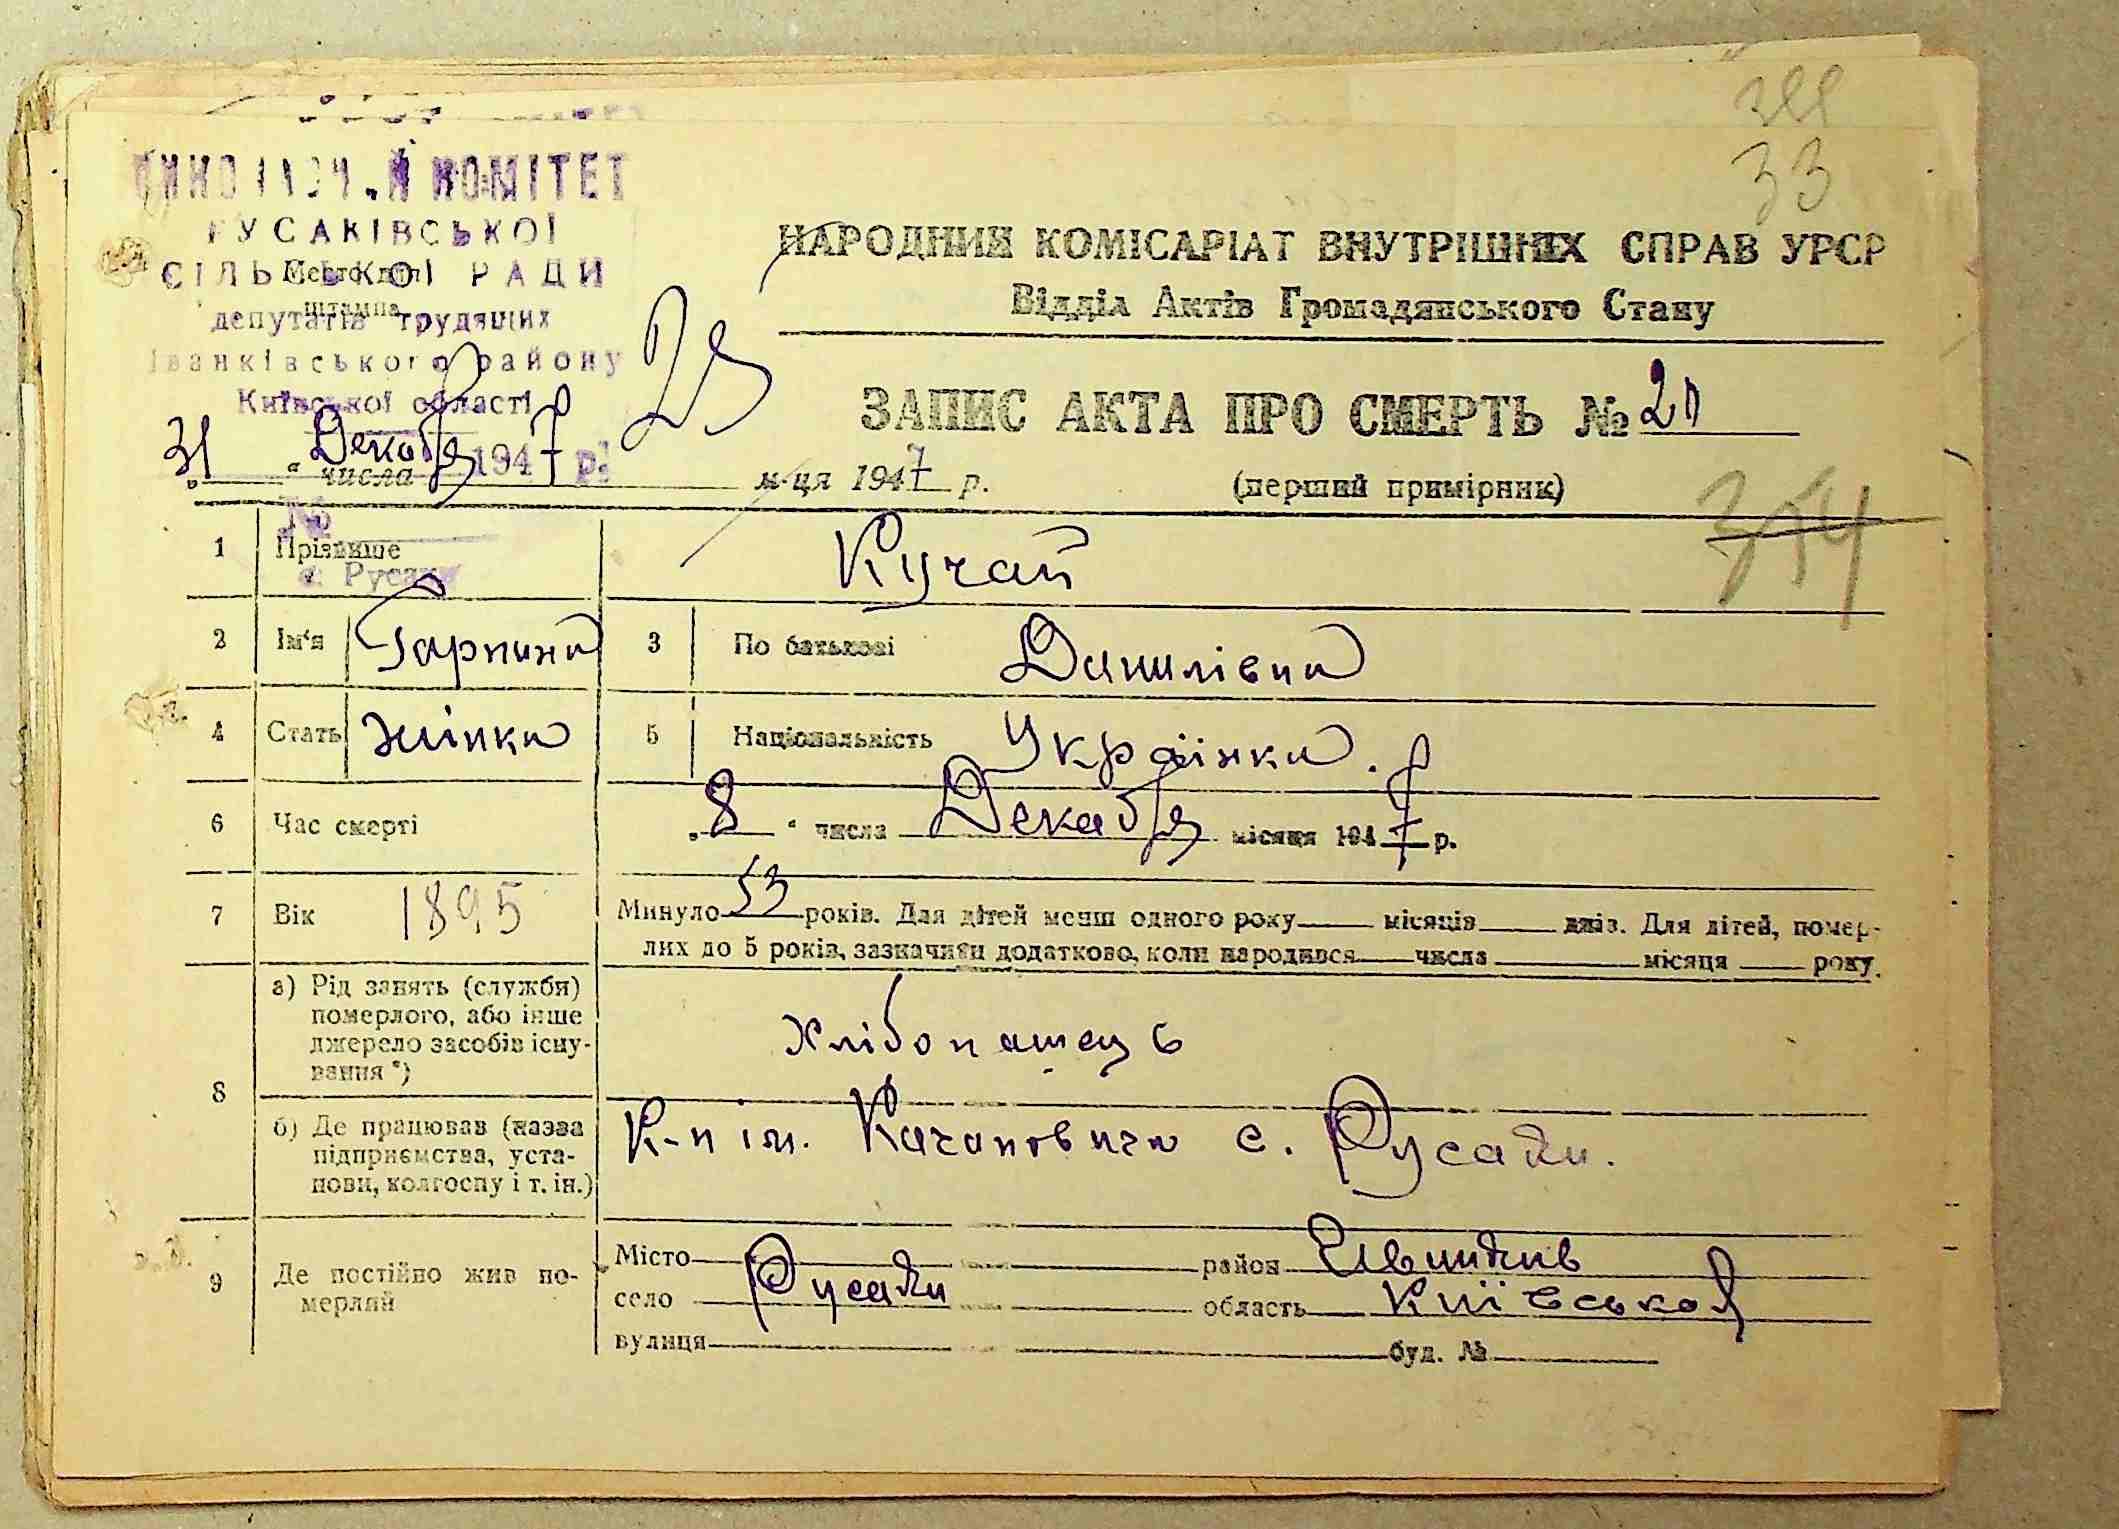 33
КОМІТЕТ
РУСАКІВСЬКОЇ
СІЛЬСЬКОЇ РАДИ
депутатів трудящих
Іванківського району
Київської області
Место для
штампа
НАРОДНИЙ КОМІСАРІАТ ВНУТРІШНІХ СПРАВ УРСР
Відділ Актів Громадянського Стану
ЗАПИС АКТА ПРО СМЕРТЬ №
(перший примірник)
31 Декабря 1947 р.
числа м-ця 1947 р.
№
с. Русаки
354
1 Прізвище Кучай
2 Ім'я Гарпина 3 По батькові Данилівна
4 Стать жінка 5 Національність Українка.
6 Час смерті „8“ числа Декабря місяця 1947 р.
7 Вік 1895 Минуло 53 років. Для дітей менш одного року місяців днів. Для дітей, помер-
лих до 5 років, зазначити додатково, коли народився числа місяця року.
8 а) Рід занять (служби)
померлого, або інше
джерело засобів існу-
вання *)
Хлібопашець
б) Де працював (назва
підприємства, уста-
нови, колгоспу і т. ін.)
К-п ім. Кагановича с. Русаки.
9 Де постійно жив по-
мерлий
Місто район Іванків
село Русаки область Київської
вулиця буд. №